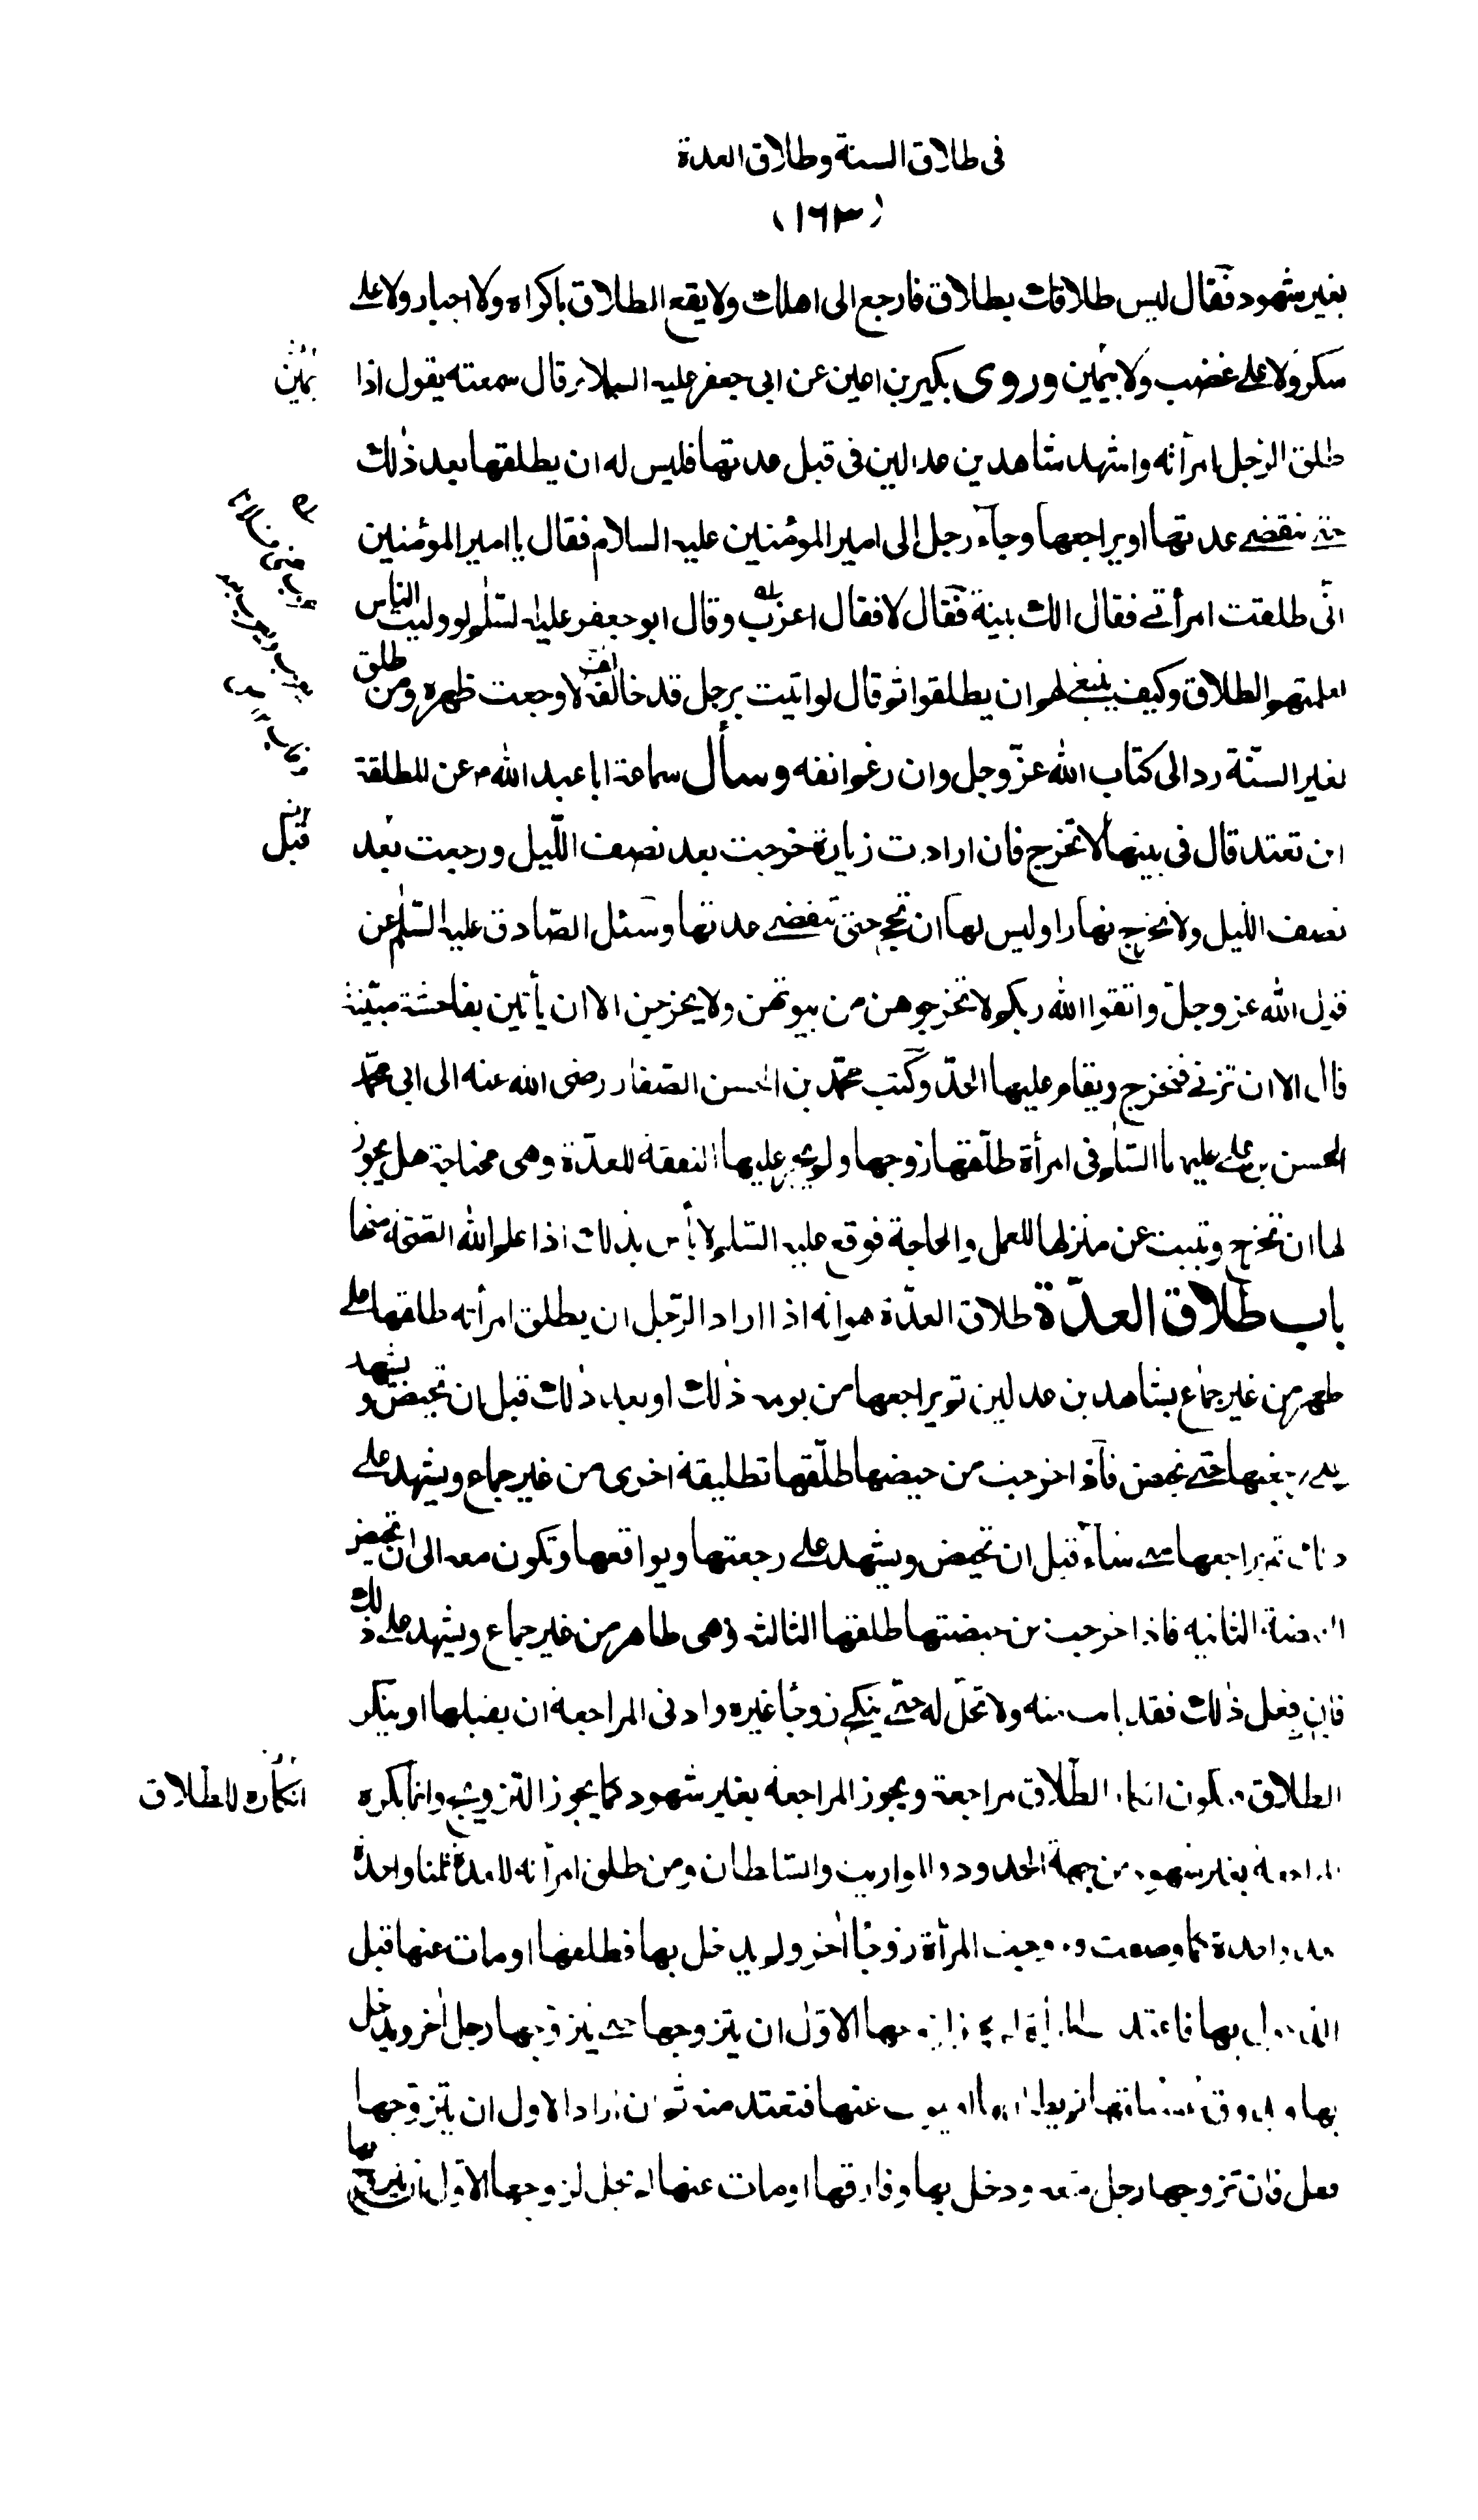 فى طلاق السنة وطلاق العدة
(١٦٣)
بغير شهود فقال ليس طلاقك بطلاق فارجع الى اهلك ولا يقع الطلاق باكراه ولا اجبار ولا على
سكر ولا على غضب ولا بيمين وروى بكير بن اعين عن ابى جعفر عليه السلام قال سمعته يقول اذا
يمين
طلق الرجل امرأته واشهد شاهدين عدلين فى قبل عدتها فليس له ان يطلقها بعد ذلك
حتى تنقضى عدتها او يراجعها وجآء رجل الى امير المؤمنين عليه السلام فقال يا امير المؤمنين
انّى طلقت امرأتى فقال الك بينة فقال لا فقال اعزب وقال ابو جعفر عليه السلم لو وليت الناس
لعلمتهم الطلاق وكيف ينبغى لهم ان يطلقوا ثم قال لو اتيت برجل قد خالف لاوجعت ظهره ومن طلق
بغير السنّة رد الى كتاب الله عزّ وجل وان رغم انفه وسأل سماعة ابا عبد الله م عن المطلقة
اين تعتد قال فى بيتها لا تخرج فان ارادت زيارة خرجت بعد نصف اللّيل ورجعت بعد
قبل
نصف الليل ولا تخرج نهارا وليس لها ان تحج حتى تنقضى عدتها وسئل الصّادق عليه السّلم عن
قول الله عز وجلّ واتقوا الله ربكم لا تخرجوهن من بيوتهن ولا يخرجن الا ان يأتين بفاحشة مبيّنة
قال الا ان تزنى فتخرج ويقام عليها الحدّ وكتب محمّد بن الحسن الصّفار رضى الله عنه الى ابى محمّد
الحسن بن على عليهما السّلم فى امرأة طلّقها زوجها ولم يجر عليها النفقة للعدّة وهى محتاجة هل يجوز
لها ان تخرج وتبيت عن منزلها للعمل والحاجة فوقع عليه السّلم لا بأس بذلك اذا علم الله الصّحّة منها
باب طلاق العدّة طلاق العدّة هو انه اذا اراد الرّجل ان يطلق امرأته طلقها على
طهر من غير جماع بشاهدين عدلين ثم يراجعها من يومه ذلك او بعد ذلك قبل ان تحيض و يشهد
على رجعتها حتى تحيض فاذا خرجت من حيضها طلّقها تطليقة اخرى من غير جماع ويشهد على
ذلك ثم يراجعها متى شآء قبل ان تحيض ويشهد على رجعتها ويواقعها وتكون معه الى ان تحيض
الحيضة الثانيه فاذا خرجت من حيضتها طلقها الثالثه وهى طاهر من غير جماع ويشهد على ذلك
فان فعل ذلك فقد بانت منه ولا تحلّ له حتّى ينكح زوجًا غيره وادنى المراجعة ان يقبلها او ينكر
الطلاق فيكون انكار الطّلاق مراجعة ويجوز المراجعة بغير شهود كما يجوز التّزويج وانّما يكره
انكاره للطلاق
المراجعة بغير شهود من جهة الحدود والمواريث والسّلطان ومن طلق امرأته للعدة ثلثا واحدة
بعد واحدة كما وصفت وتزوجت المرأة زوجًا اخر ولم يدخل بها فطلقها او مات عنها قبل
الدخول بها فاعتدت المرأة لم يجز لزوجها الاوّل ان يتزوجها حتى يتزوّجها رجل اخر ويدخل
بها ويذوق عسيلتها ثم يطلقها او يموت عنها فتعتد منه ثم ان اراد الاول ان يتزوّجها
فعل فان تزوجها رجل متعه ودخل بها وفارقها او مات عنها لم تحل لزوجها الاوّل ان يتزوّج بها